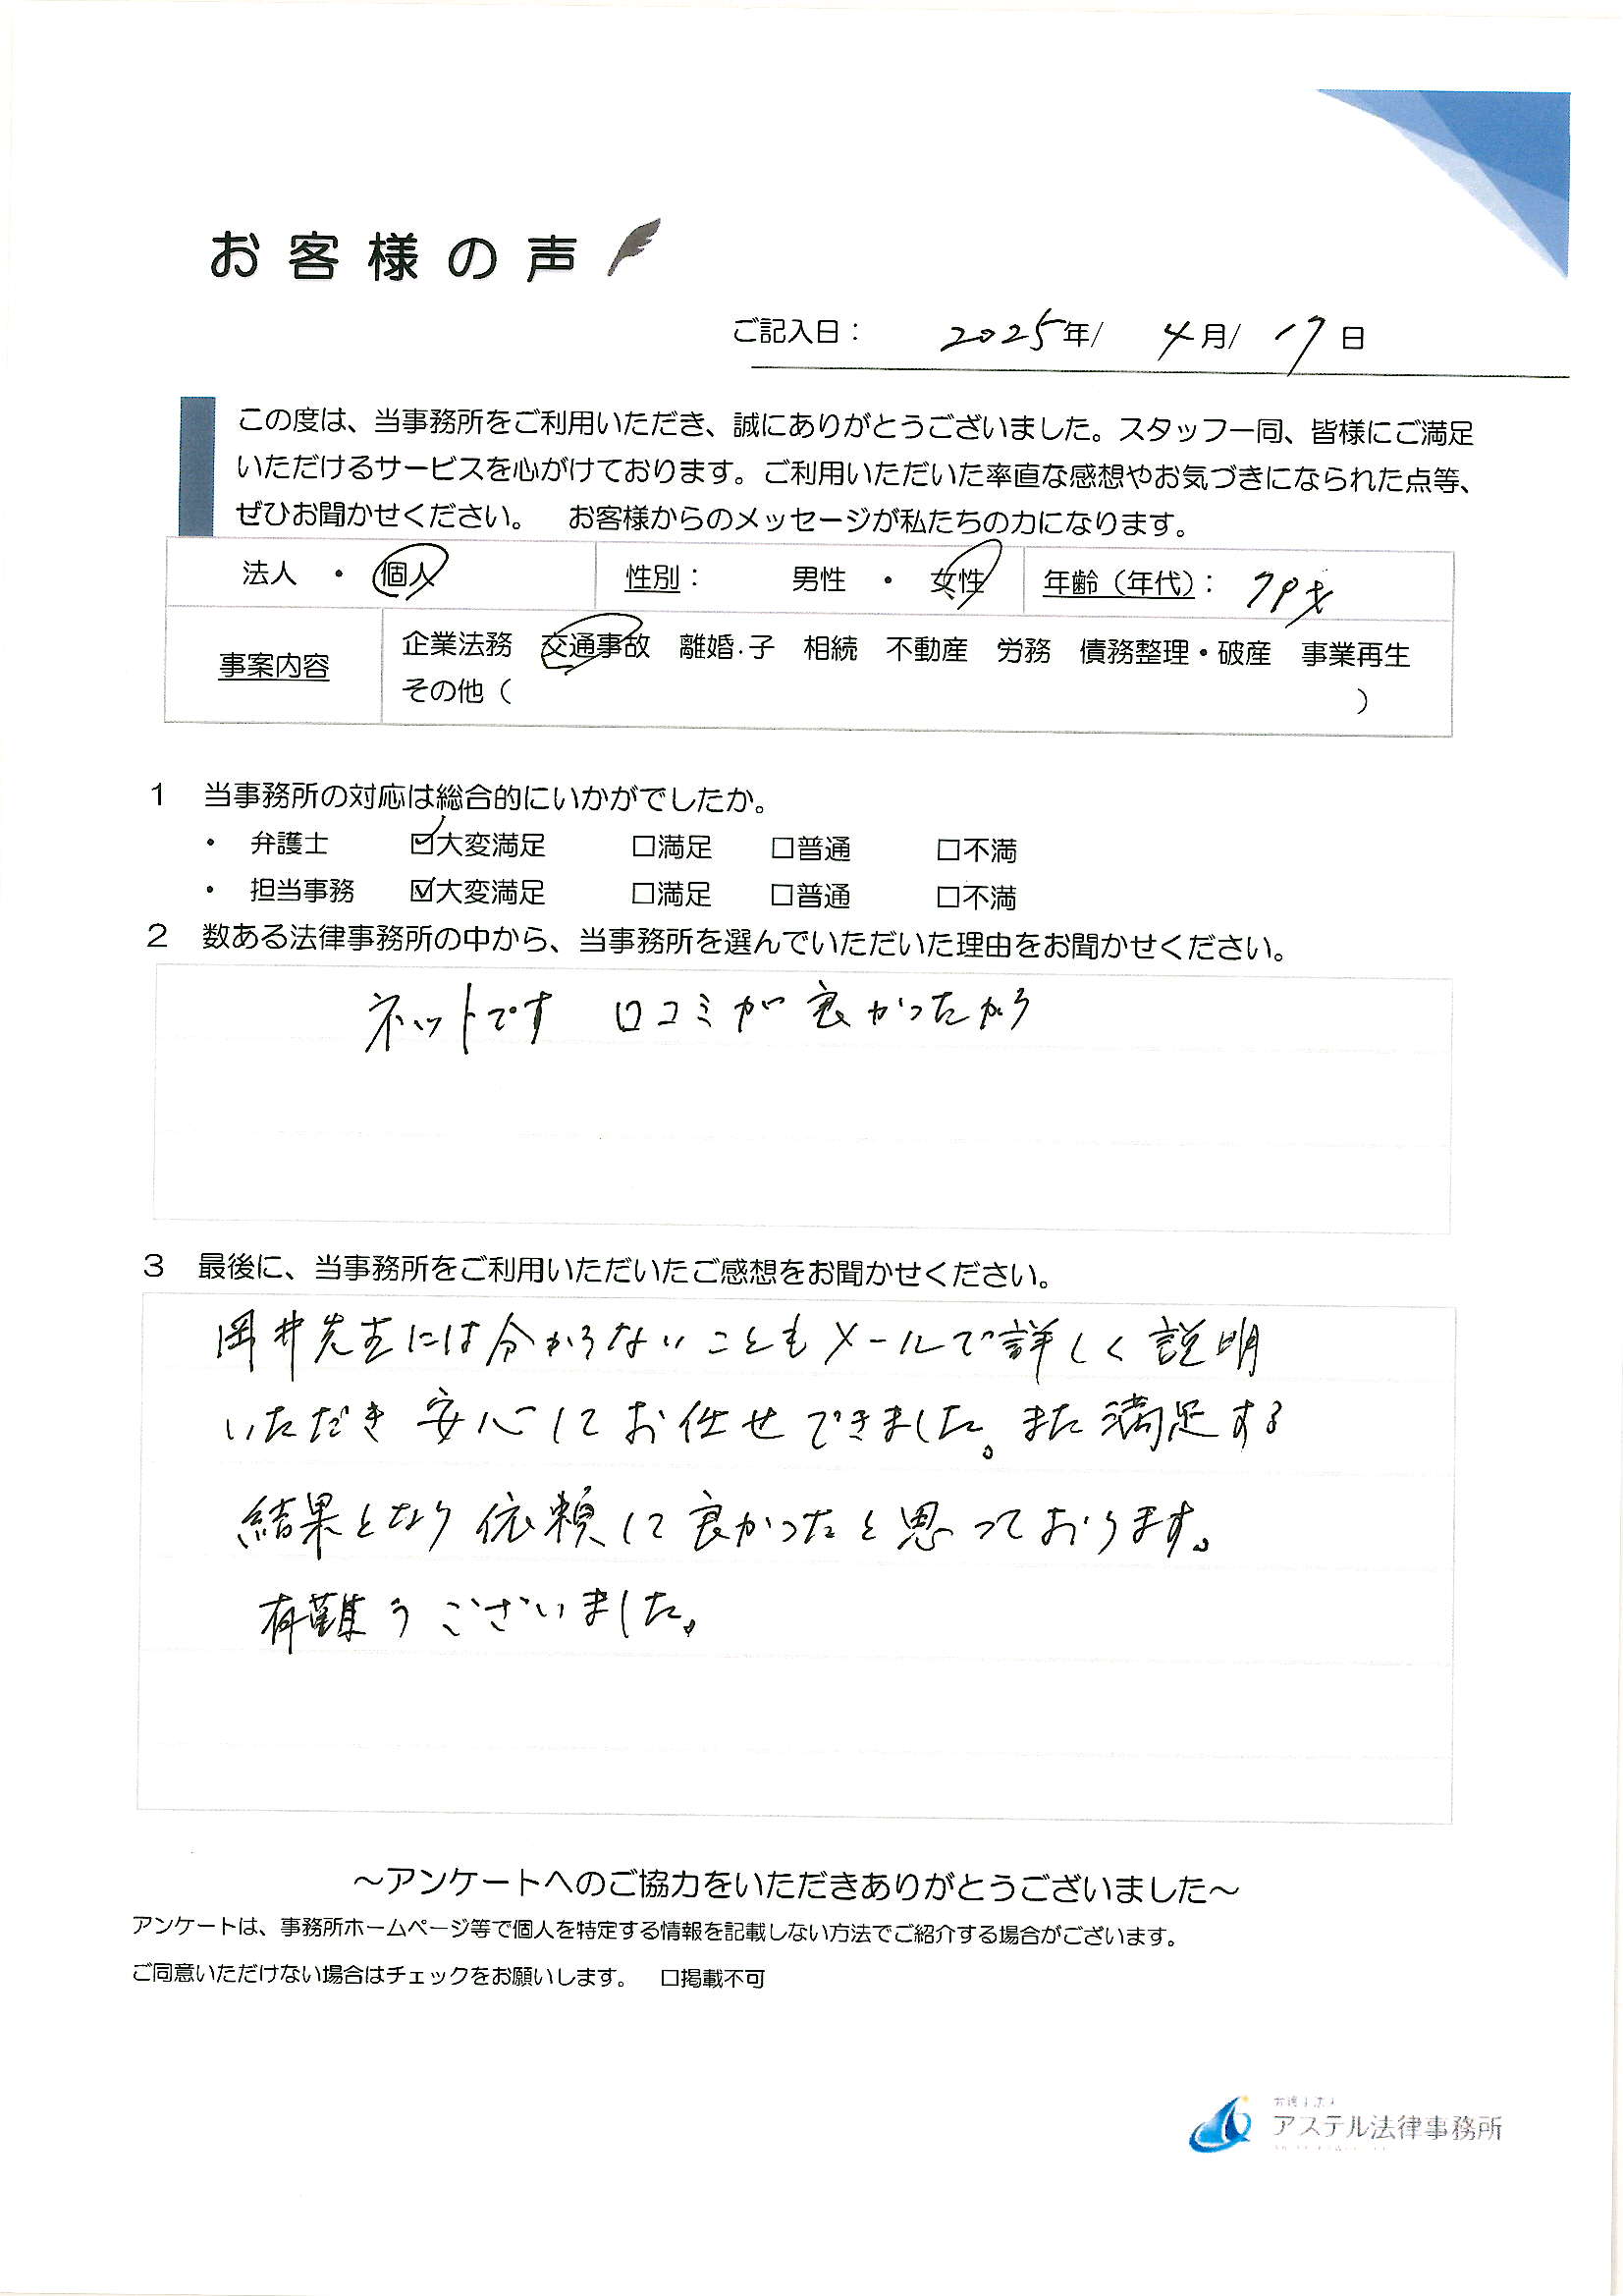 お客様の声
ご記入日： 2025年/ 4月/ 17日
この度は、当事務所をご利用いただき、誠にありがとうございました。スタッフ一同、皆様にご満足
いただけるサービスを心がけております。ご利用いただいた率直な感想やお気づきになられた点等、
ぜひお聞かせください。 お客様からのメッセージが私たちの力になります。
法人 ・ 個人 性別： 男性 ・ 女性 年齢（年代）：
事案内容 企業法務 交通事故 離婚・子 相続 不動産 労務 債務整理・破産 事業再生
その他（ ）
1 当事務所の対応は総合的にいかがでしたか。
・ 弁護士 ☑大変満足 □満足 □普通 □不満
・ 担当事務 ☑大変満足 □満足 □普通 □不満
2 数ある法律事務所の中から、当事務所を選んでいただいた理由をお聞かせください。
ネットです 口コミが良かったから
3 最後に、当事務所をご利用いただいたご感想をお聞かせください。
岡井先生には分からないこともメールで詳しく説明
いただき安心してお任せできました。また満足する
結果となり依頼して良かったと思っております。
有難うございました。
～アンケートへのご協力をいただきありがとうございました～
アンケートは、事務所ホームページ等で個人を特定する情報を記載しない方法でご紹介する場合がございます。
ご同意いただけない場合はチェックをお願いします。 □掲載不可
弁護士法人
アステル法律事務所